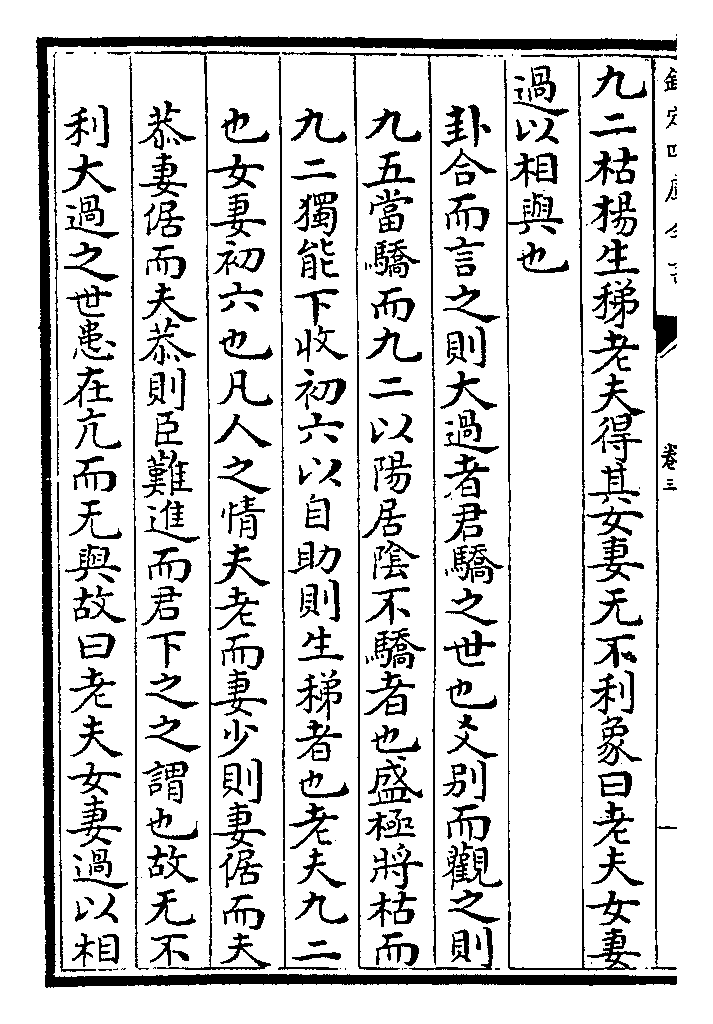 欽定四庫全書
卷三
九二枯楊生稊老夫得其女妻无不利象曰老夫女妻
過以相與也
卦合而言之則大過者君驕之世也爻别而觀之則
九五當驕而九二以陽居陰不驕者也盛極將枯而
九二獨能下收初六以自助則生稊者也老夫九二
也女妻初六也凡人之情夫老而妻少則妻倨而夫
恭妻倨而夫恭則臣難進而君下之之謂也故无不
利大過之世患在亢而无與故曰老夫女妻過以相